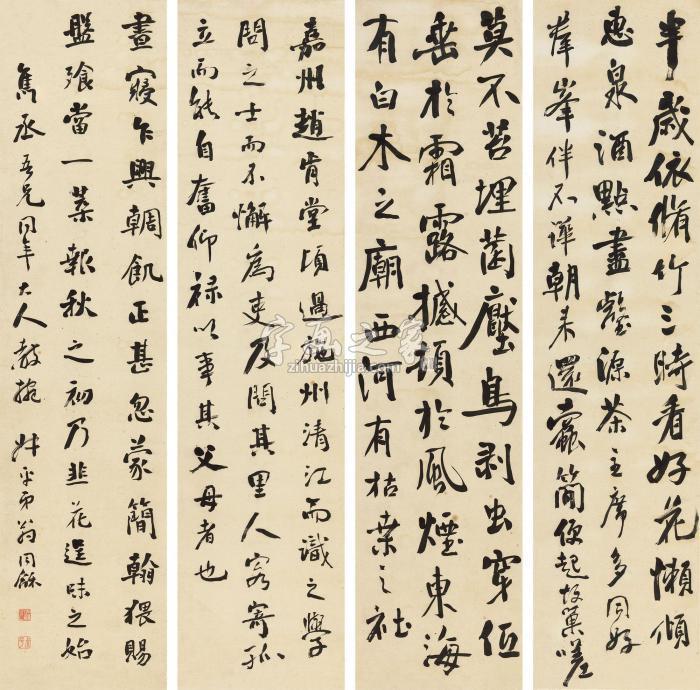 半歲依脩竹三時看好花懶傾
惠泉酒點盡壑源茶主席多同好
羣峯伴不譁朝來還蠹簡便起故巢嗟
莫不苔埋菌壓鳥剥虫穿低
垂於霜露撼頓於風煙東海
有白木之廟西河有枯桑之社
嘉州趙肯堂頃過施州清江而識之學
問之士而不懈為吏及問其里人客寄孤
立而能自奮仰祿以事其父母者也
晝寢乍興輖飢正甚忽蒙簡翰猥賜
盤飧當一葉報秋之初乃韭花逞味之始
雋丞吾兄同年大人教 叔平弟翁同龢
字画之家
zihuazhijia.com